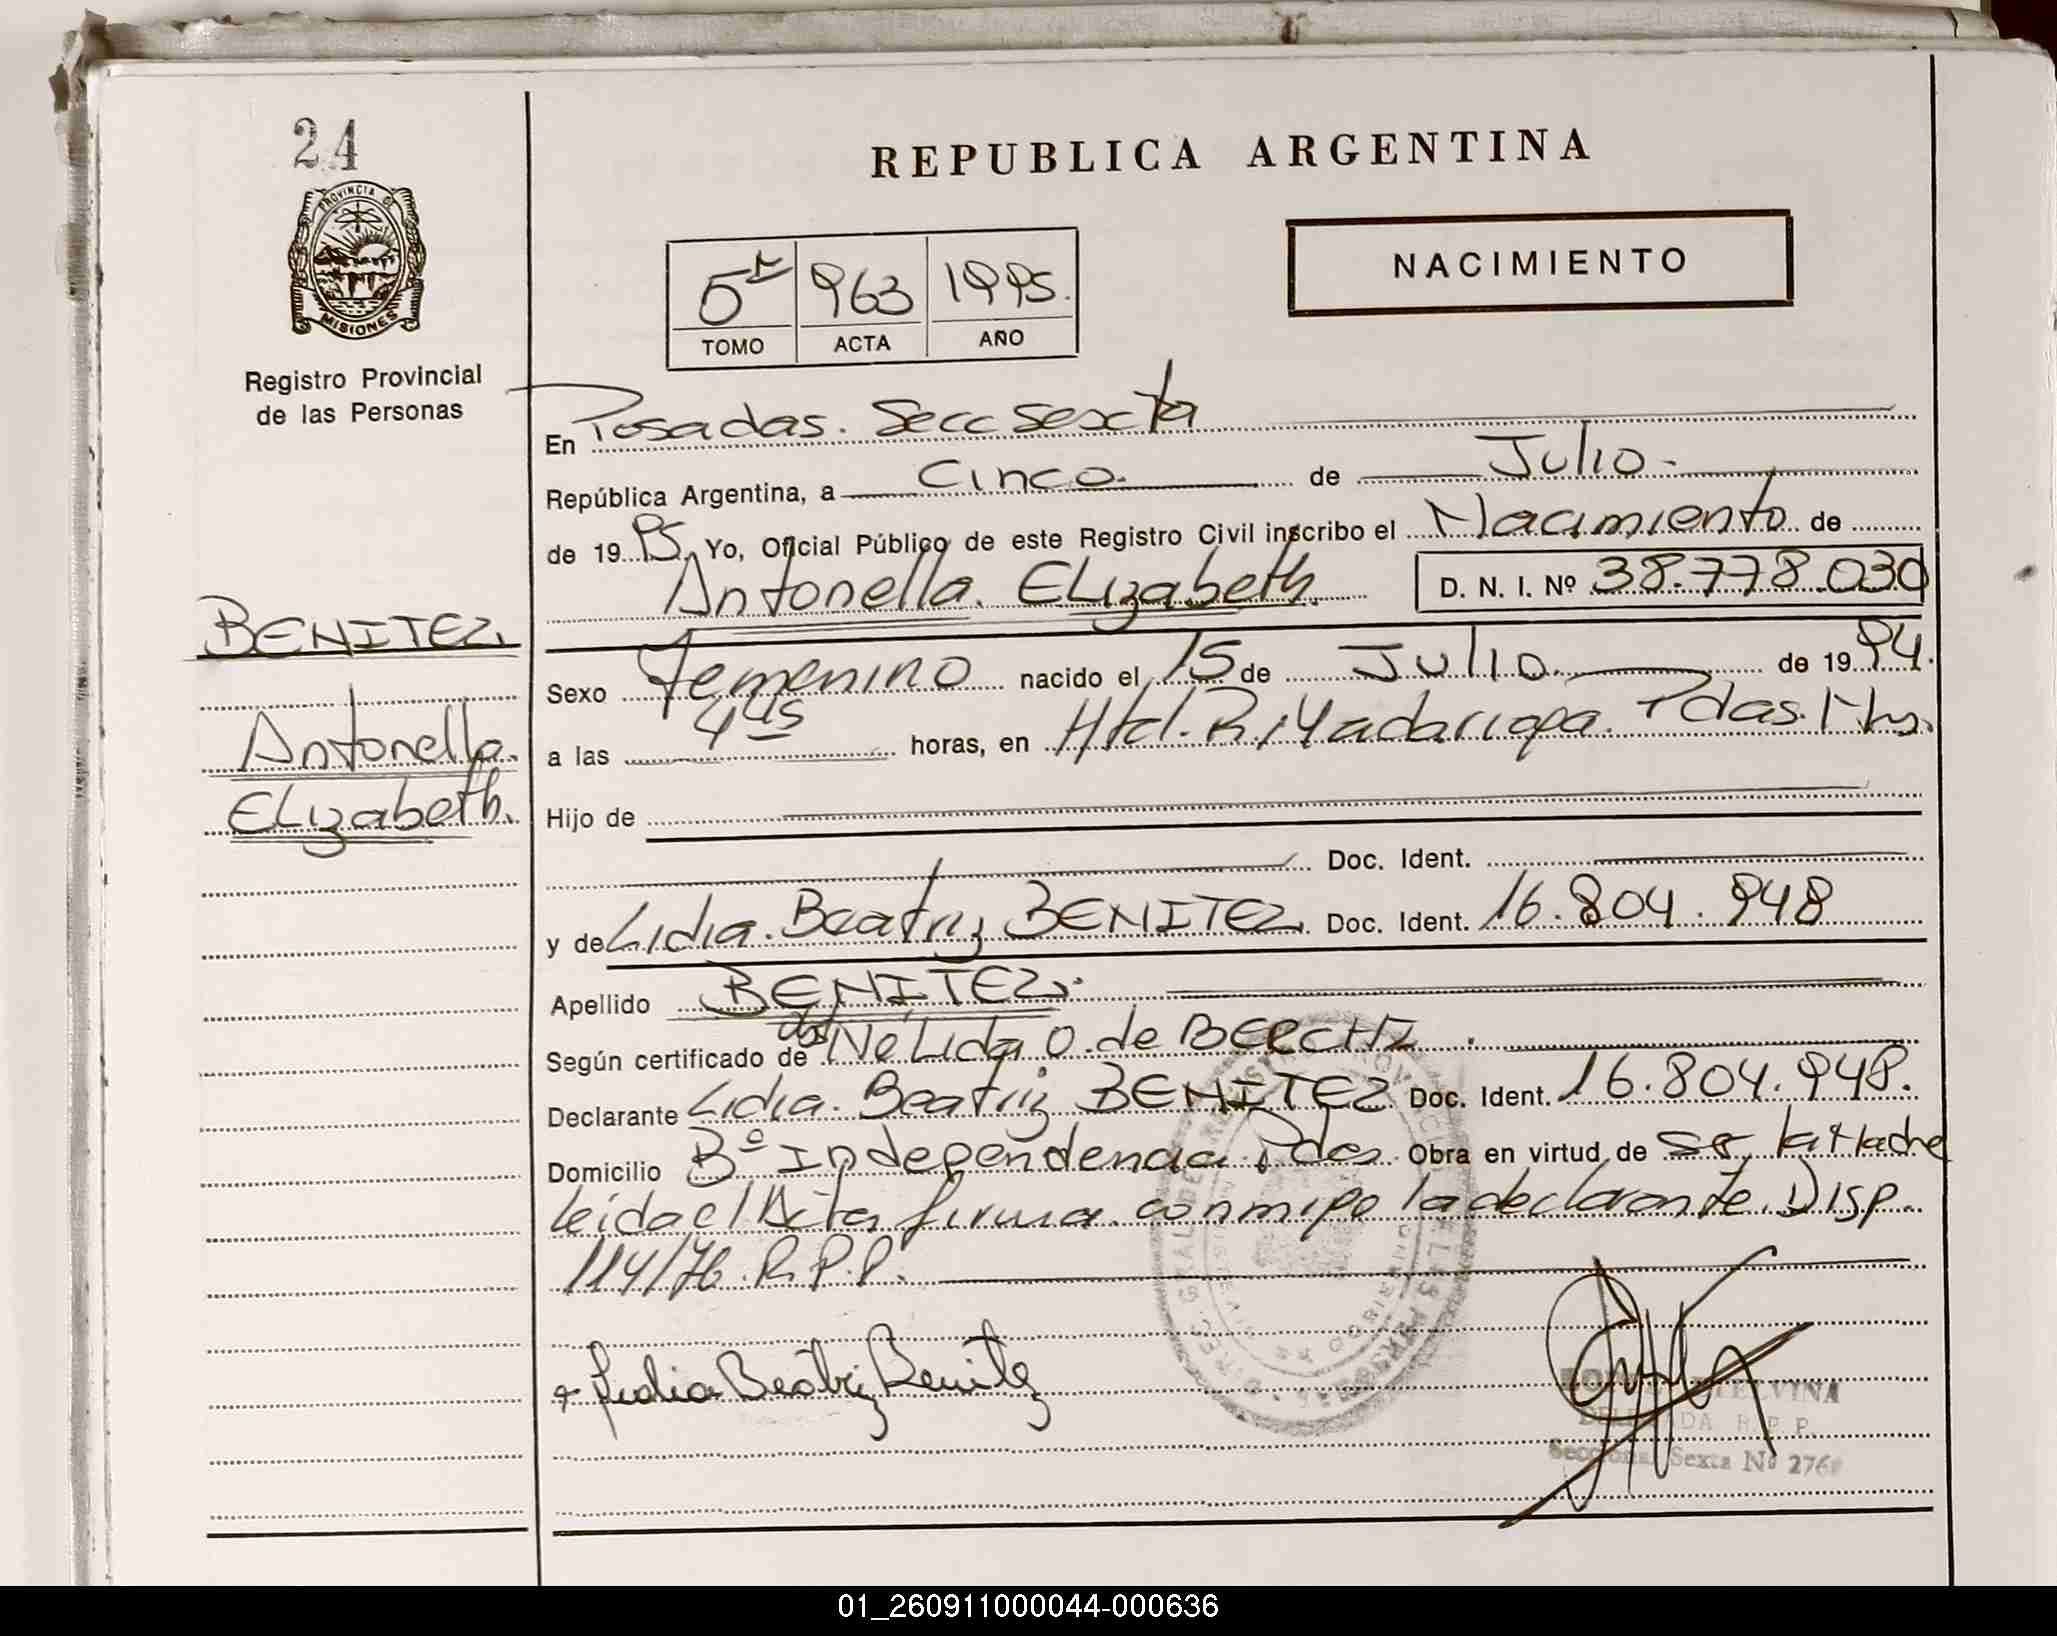 24
REPUBLICA ARGENTINA
PROVINCIA DE
MISIONES
Registro Provincial
de las Personas
5º 963 1995.
TOMO ACTA AÑO
NACIMIENTO
En Posadas. Secc Sexta
República Argentina, a Cinco. de Julio.
de 1995. Yo, Oficial Público de este Registro Civil inscribo el Nacimiento de
Antonella. Elizabeth. D. N. I. Nº 38.778.030
BENITEZ
Antonella.
Elizabeth.
Sexo femenino nacido el 15 de Julio de 1994.
a las 4 45 horas, en Htal. R. Madariaga. Pdas. Mns.
Hijo de
Doc. Ident.
y de Lidia. Beatriz BENITEZ. Doc. Ident. 16.804.948
Apellido BENITEZ.
Según certificado de Obst Nélida O. de
Declarante Lidia. Beatriz BENITEZ Doc. Ident. 16.804.948.
Domicilio Bº Independencia. Pdas. Obra en virtud de ser la Madre
leida el Acta firma conmigo la declarante. Disp.
114/76. R.P.P.
Lidia Beatriz Benitez
ELVINA
DELEGADA R.P.P.
Seccional Sexta Nº 276
01_260911000044-000636